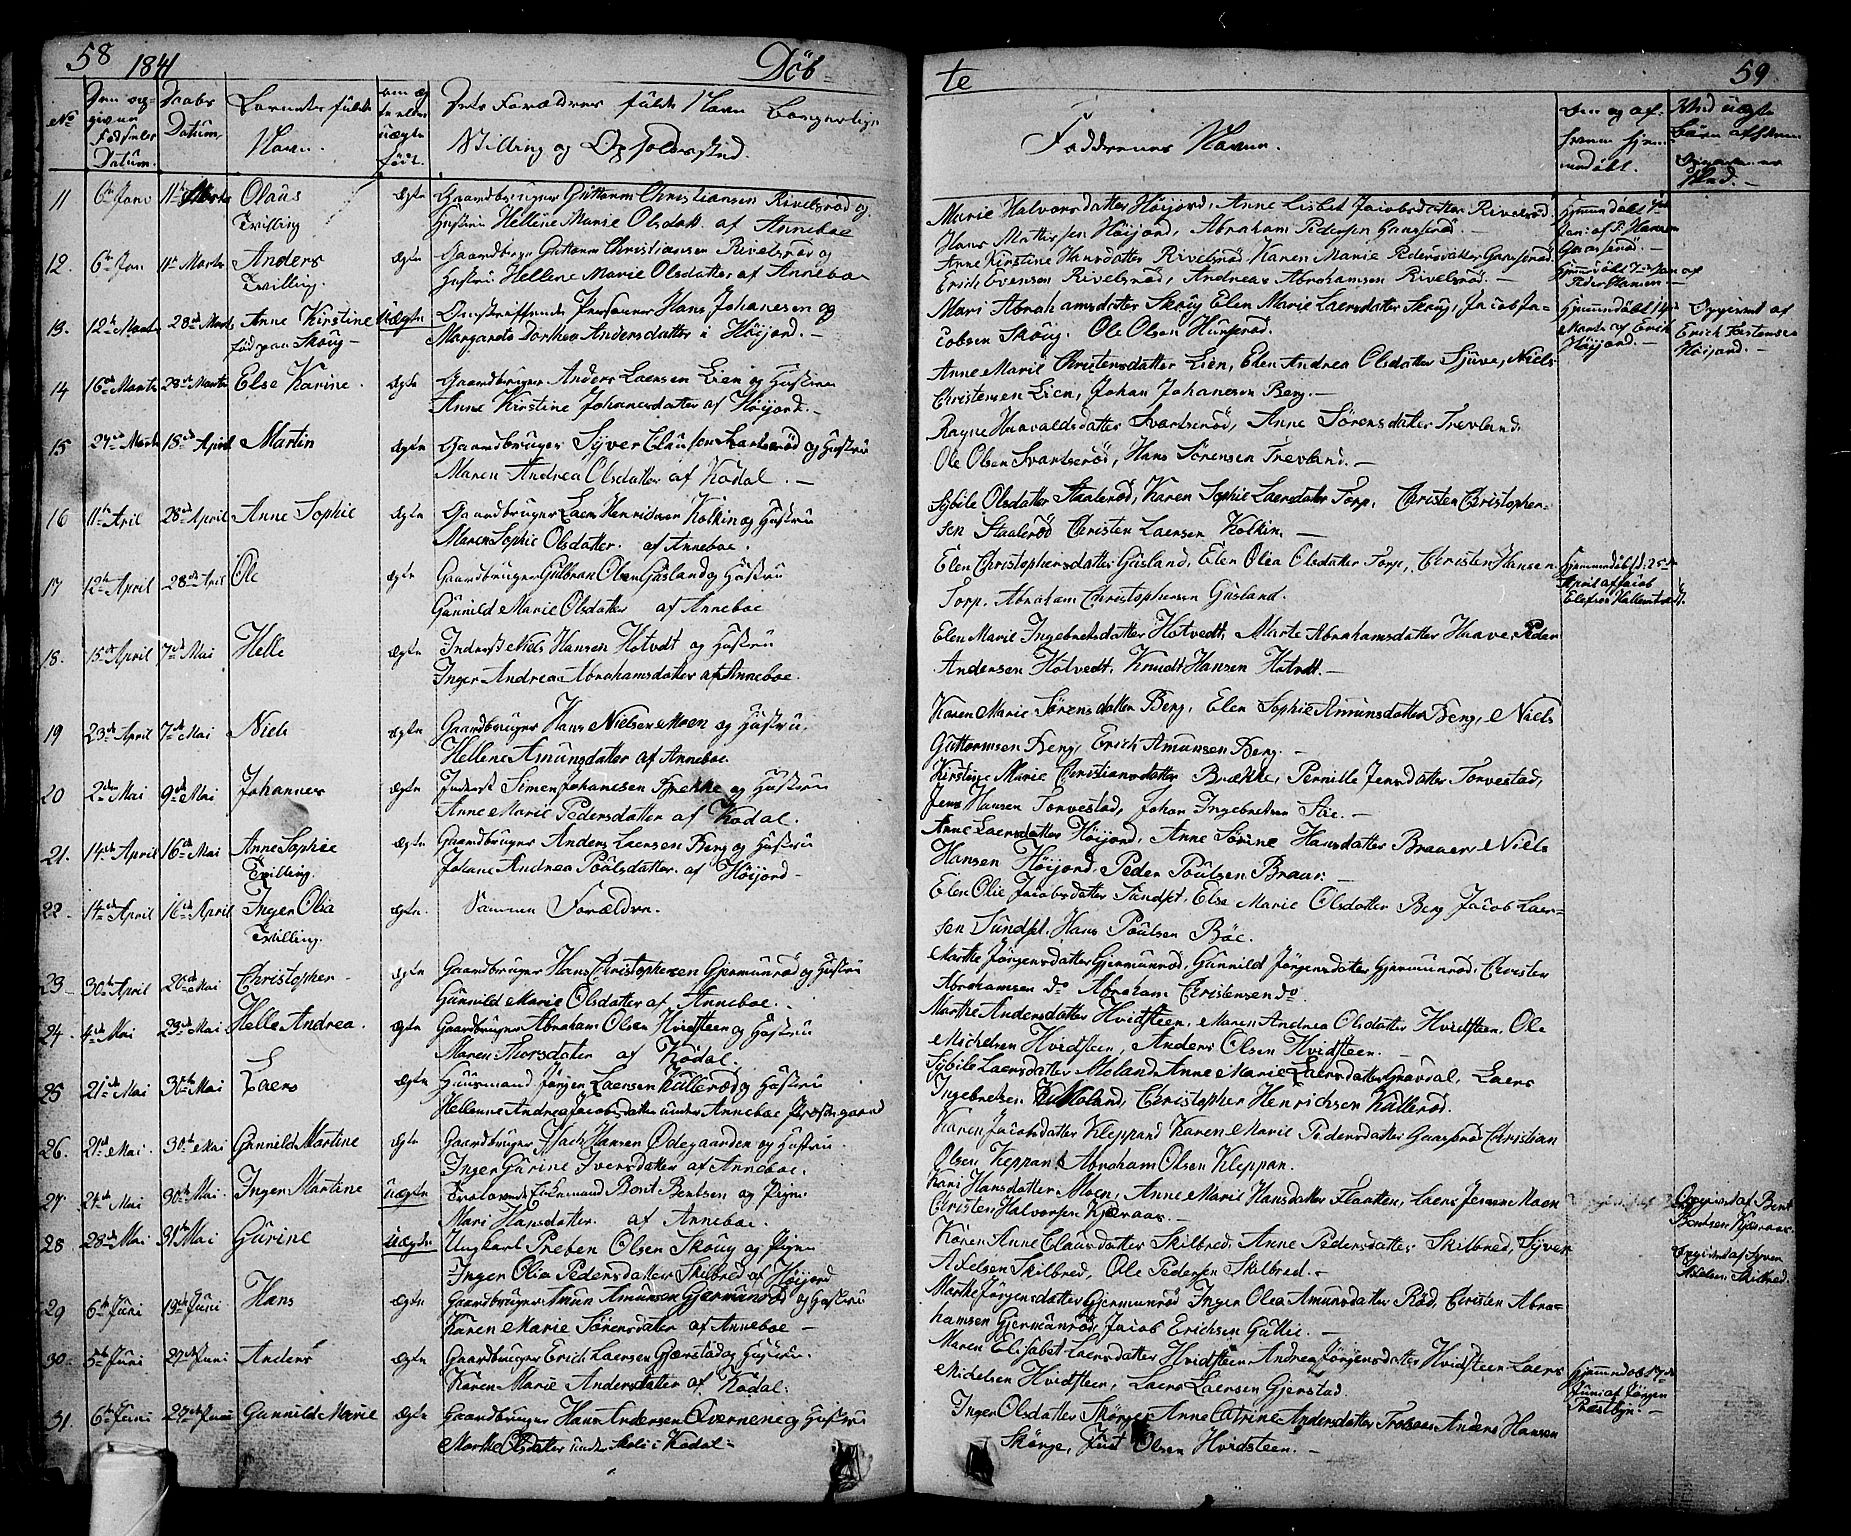 58 1841 Döb-
te 59
No
Datum.
Datum.
Navn.
Dets Forældres fulde Navn
Stilling og Opholdssted.
Faddernes Navne.
11 6te Jan 11te Marts Olaus ægte Gaardbruger Guttorm Christiansen Rivelsrød og
Tvilling Hustru Hellene Marie Olsdatt. af Anneboe
Marie Halvorsdatter Höijord, Anne Lisbet Jacobsdatter Rivelsröd
Hans Mathisen Höijord, Abraham Pedersen Gaaserød. —
12. 6te Jan 11te Marts Anders ægte Gaardbruger Guttorm Christiansen Rivelsrød og
Tvilling. Hustru Hellene Marie Olsdatter af Anneboe
Anne Kirstine Hansdatter Rivelsröd Karen Marie Pedersdatter Gaaseröd
Erich Evensen Rivelsröd, Andreas Abrahamsen Rivelsröd. —
13. 12te Marts 28de Marts Anne Kirstine uægte Omstreiffende Personer Hans Johanesen og
född paa Skoug — Margarete Dorthea Andersdatter i Höijord. —
Mari Abrahamsdatter Skoug Elen Marie Laersdatter Skoug, Jacob Ja-
cobsen Skoug. Ole Olsen Hunsröd.
Hjemmedöbt 14de
Marts af Erich
Höijord. —
Opgivet af
Erich Torstensen
Höijord. —
14 16de Marts 28de Marts Else Karine. ægte Gaardbruger Anders Laersen Lien og Hustru
Anne Kirstine Johanesdatter af Höijord. —
Anne Marie Christensdatter Lien, Elen Andrea Olsdatter Sjuve, Niels
Christensen Lien, Johan Johanesen Berg. —
15 24de Marts 18de April Martin ægte Gaardbruger Syver Clausen Svartsröd og Hustru
Maren Andrea Olsdatter af Kodal. —
Ragne Hunvaldsdatter Svartseröd, Anne Sörensdatter Trevland.
Ole Olsen Svartseröd, Hans Sörensen Trevland. —
16 11te Aril 28de April Anne Sophie ægte Gaardbruger Laers Henriksen Kolkin og Hustru
Maren Sophie Olsdatter. af Anneboe.
Sybile Olsdatter Staaleröd, Karen Sophie Laersdatter Torp, Christen Christopher-
sen Staaleröd Christen Laersen Kolkin. —
17 12te April 28de Aril Ole ægte Gaardbruger Gulbran Olsen Gusland og Hustru
Gunnild Marie Olsdatter af Anneboe
Elen Christophersdatter Gusland, Elen Olea Olsdatter Torp, Christen Hansen
Torp. Abraham Christophersen Gusland.
Hjemmedöbt d. 25de
April af Jacob
18. 15de April 7de Mai Helle ægte Inderst Niels Hansen Hotvedt og Hustru
Inger Andrea Abrahamsdatter af Anneboe.
Elen Marie Ingebretsdatter Hotvedt, Marte Abrahamsdatter Haave, Peder
Andersen Hotvedt, Knudt Hansen Hotvedt. —
19 23de April 7de Mai Niels ægte Gaardbruger Hans Nielsen Moen og Hustru
Hellene Amunsdatter af Anneboe
Karen Marie Sörensdatter Berg, Elen Sophie Amunsdatter Berg, Niels
Guttormsen Berg, Erich Amunsen Berg. —
20 2den Mai 9de Mai Johannes ægte Inderst Simen Johanesen Brekke og Hustru
Anne Marie Pedersdatter af Kodal.
Kirstine Marie Christiansdatter Brække, Pernille Jensdatter Torvestad,
Jens Hansen Torvestad, Johan Ingebretsen Söe. —
21. 14de April 16de Mai Anne Sophie ægte Gaardbruger Anders Laersen Berg og Hustru
Tvilling. Johane Andrea Poulsdatter. af Höijord —
Anne Laersdatter Höijord, Anne Sörine Hansdatter Braaer, Niels
Hansen Höijord, Peder Poulsen Braar. —
22. 14de April 16de April Inger Olia ægte. Samme Forældre.
Tvilling.
Elen Olie Jacobsdatter Sundset, Else Marie Olsdatter Berg Jacob Laer-
sen Sundset. Hans Poulsen Böe.
23 30te April 20de Mai Christopher ægte Gaardbruger Hans Christophersen Gjermunröd og Hustru
Gunnild Marie Olsdatter af Anneboe.
Marthe Jörgensdatter Gjermunröd, Gunnild Jörgensdatter Gjermunröd, Christen
Abrahamsen do Abraham Christensen do.
24. 4de Mai 23de Mai Helle Andrea. ægte Gaardbruger Abraham Olsen Hvidsteen og Hustru
Maren Thorsdatter af Kodal.
Marthe Andersdatter Hvidsteen, Maren Andrea Olsdatter Hvidsteen, Ole
Michelsen Hvidsteen, Anders Olsen Hvidsteen. —
25 21de Mai 30te Mai Laers ægte Huusmand Jörgen Laersen Kulleröd og Hustru
Hellenne Andrea Jacobsdatter under Anneboe Præstegaard
Sybile Laersdatter Moland Anne Marie Laersdatter Gravdal, Laers
Ingebretsen Moland, Christopher Henrichsen Kulleröd.
26. 21de Mai. 30te Mai Gunnild Martine ægte Gaardbruger Isach Hansen Ödegaarden og Hustru
Inger Gurine Iversdatter af Anneboe.
Karen Jacobsdatter Kleppan Karen Marie Pedersdatter Gaaseröd Christian
Olsen Kleppan Abraham Olsen Kleppan.
27 24de Mai 30te Mai. Inger Martine uægte Forlovede Enkemand Berit Bentsen og Pigen
Mari Hansdatter. af Anneboe.
Kari Hansdatter Moen, Anne Marie Hansdatter Flaatten, Laers Jensen Moen
Christen Halvorsen Kjæraas. —
Opgivet af Bent
Bentsen Kjæraas.
28 28de Mai 31 Mai Gurine uægte Ungkarl Preben Olsen Skoug og Pigen
Inger Olia Pedersdatter Skilbred af Höijord
Karen Anne Clausdatter Skilbred, Anne Pedersdatter Skilbred, Syver
Axelsen Skilbred, Ole Pedersen Skilbred. —
Opgivet af Syver
Axelsen Skilbred.
29 6te Juni 13de Juni Hans ægte Gaardbruger Amun Amunsen Gjermundröd og Hustru
Karen Marie Sörensdatter af Anneboe —
Marthe Jörgensdatter Gjermunröd Inger Olea Amunsdatter Röd, Christen Abra-
hamsen Gjermunröd, Jacob Erichsen Guttu. —
30. 5te Juni 27de Juni Anders ægte Gaardbruger Erich Laersen Gjærstad og Hustru.
Karen Marie Andersdatter af Kodal.
Maren Elisabet Laersdatter Hvidsteen Andrea Jörgensdatter Hvidsteen Laers
Michelsen Hvidsteen, Laers Laersen Gjerstad.
Juni af Jörgen
Præstbyn. —
31. 6te Juni 27de Juni Gunnild Marie ægte Gaardbruger Hans Andersen Qvernene og Hustru
Marthe Olsdatter unde Skoli i Kodal —
Inger Olsdatter Skörge Anne Catrine Andersdatter Trolsaas Anders Hansen
Skörge, Just Olsen Hvidsteen. —